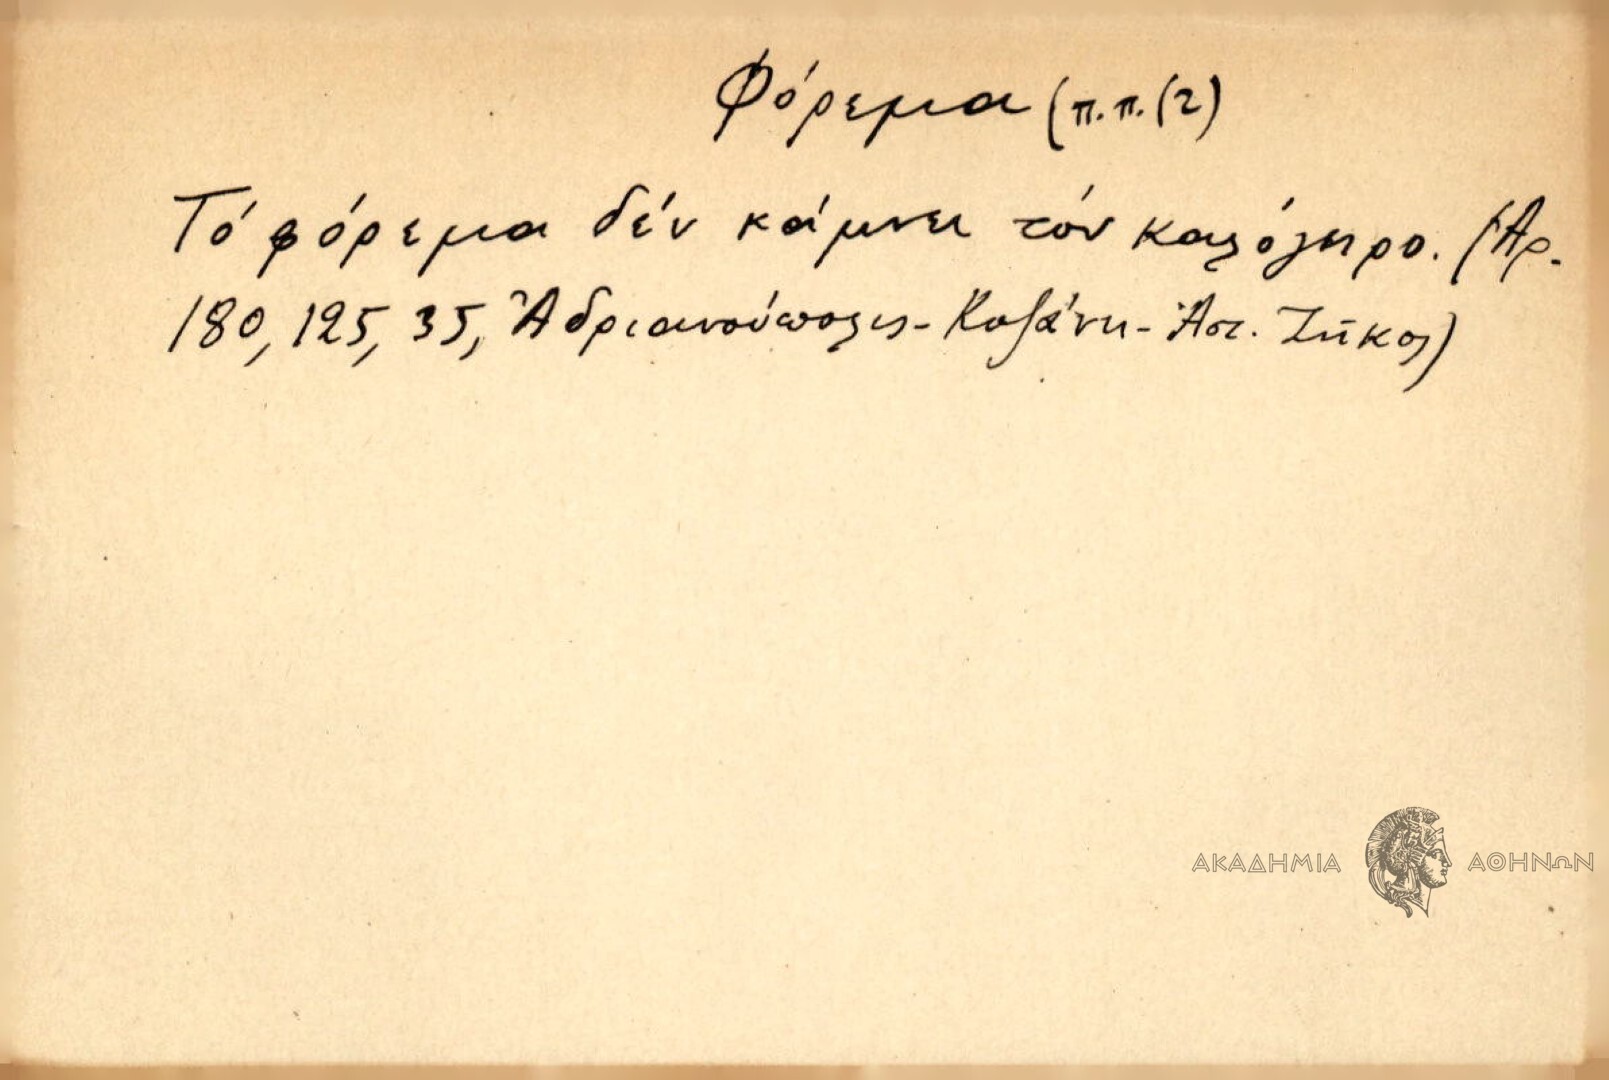 Φόρεμα (π.π. (2)
Τό φόρεμα δέν κάμνει τόν καλόγερο. (Αρ.
180, 125, 35, Ἀδριανούπολις - Κοζάνη - Ἀστ. Ζῆκος)
ΑΚΑΔΗΜΙΑ ΑΘΗΝΩΝ